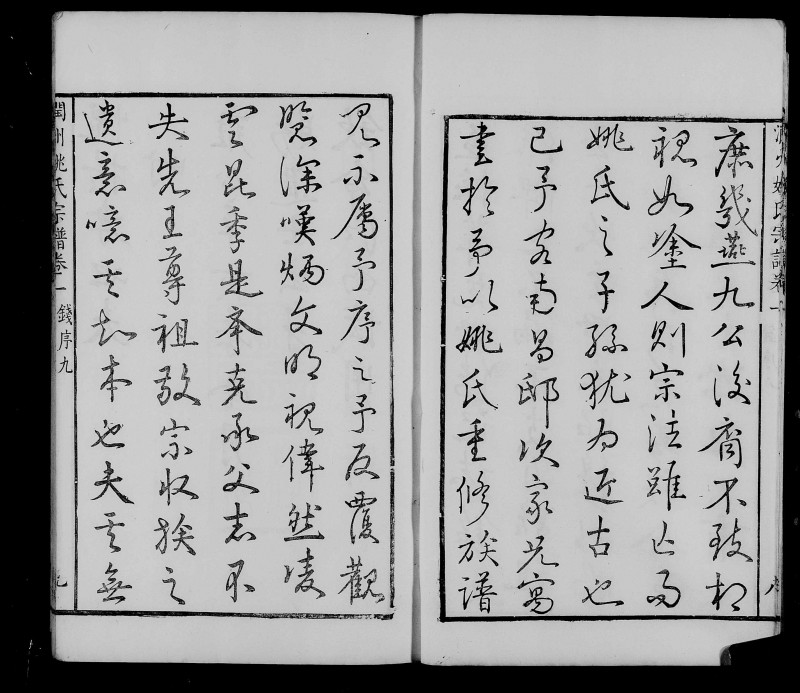 潤州姚氏宗譜卷一
庶幾燕九公後裔不致相
視如塗人則宗法雖亡而
姚氏之子孫猶為近古也
已予客南昌邸次家兄寓
書於予以姚氏重修族譜
見示屬予序之予反覆觀
覽深嘆炳文明視偉然凌
雲昆季是舉克承父志不
失先王尊祖敬宗收族之
遺意噫其知本也夫其無
潤州姚氏宗譜卷一 錢序九
九